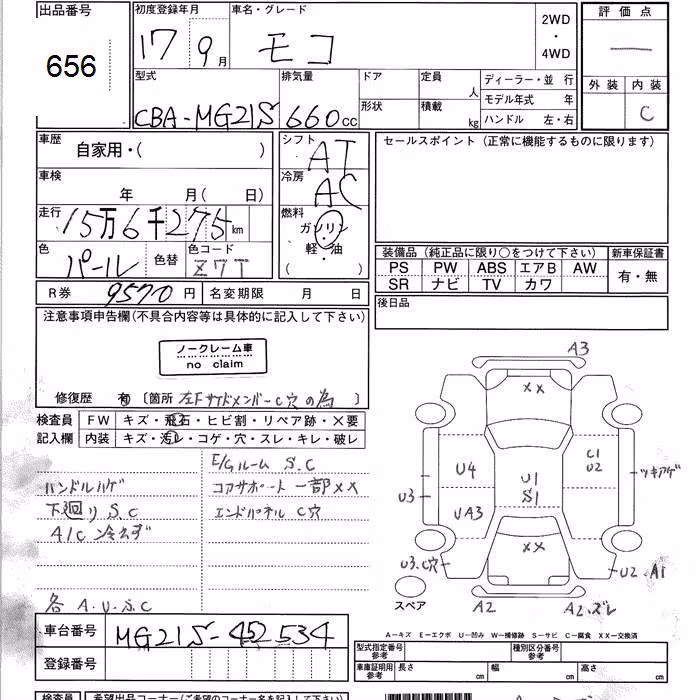 出品番号
656
初度登録年月
17 9月
車名・グレード
モコ
2WD
・
4WD
評価点
外装 内装
C
型式
CBA-MG21S
排気量
660cc
ドア
形状
定員
人
積載
kg
ディーラー・並 行
モデル年式 年
ハンドル 左・右
車歴
自家用・( )
車検
年 月( 日)
走行
15万6千275km
色
パール
色替
色コード
Z7T
シフト
AT
冷房
AC
燃料
ガソリン
・
軽・油
( )
R券
9570円
名変期限 月 日
セールスポイント(正常に機能するものに限ります)
装備品(純正品に限り○をつけて下さい)
新車保証書
PS PW ABS エアB AW
SR ナビ TV カワ
有・無
後日品
注意事項申告欄(不具合内容等は具体的に記入して下さい)
ノークレーム車
no claim
修復歴 有 〔箇所 左Fサイドメンバー C穴の為 〕
検査員
記入欄
FW キズ・飛石・ヒビ割・リペア跡・×要
内装 キズ・汚レ・コゲ・穴・スレ・キレ・破レ
ハンドルハゲ
下廻り S.C
A/C 冷えず
各 A.U.S.C
E/Gルーム S.C
コアサポート一部××
エンドパネル C穴
A3
××
U4
U1
S1
C1
U2
ツキアゲ
U3
UA3
××
U3.C穴
U2.A1
スペア
A2
A2.ズレ
A-キズ E-エクボ U-凹み W-補修跡 S-サビ C-腐食 XX-交換済
車台番号
MG21S-452534
登録番号
型式指定番号
参考
種別区分番号
参考
車庫証明用
参考
長さ cm
幅 cm
高さ cm
検査員
希望出品コーナー(ご希望のコーナー名を記入して下さい)